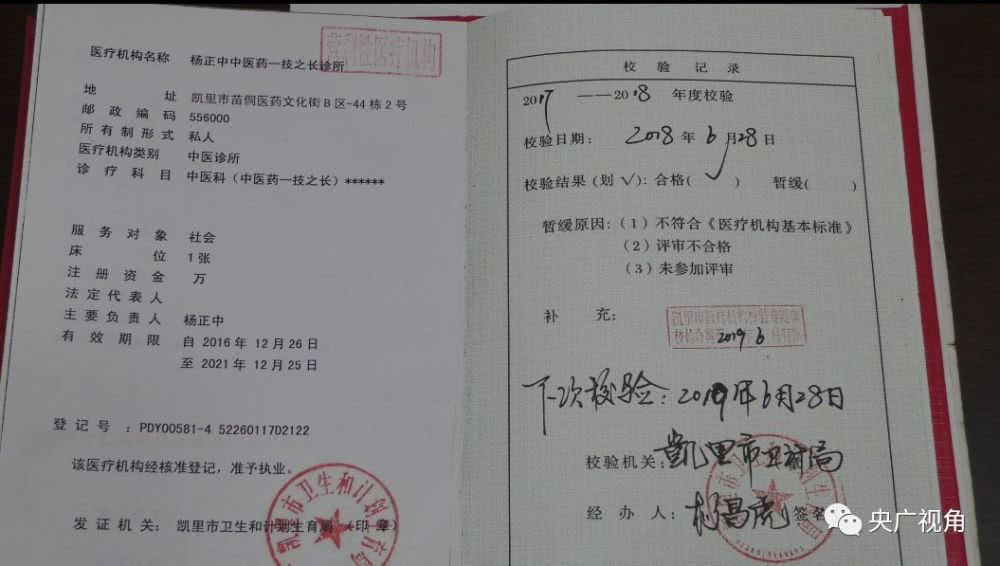 营利性医疗机构
医疗机构名称 杨正中中医药一技之长诊所
地 址 凯里市苗侗医药文化街B区-44栋2号
邮政编码 556000
所有制形式 私人
医疗机构类别 中医诊所
诊疗科目 中医科（中医药一技之长）******
服务对象 社会
床 位 1张
注册资金 万
法定代表人
主要负责人 杨正中
有效期限 自2016年12月26日
至2021年12月25日
登记号：PDY00581-4 52260117D2122
该医疗机构经核准登记，准予执业。
发证机关：凯里市卫生和计划生育局（印章）
凯里市卫生和计划生育局
校验记录
2017——2018年度校验
校验日期：2018年6月28日
校验结果(划√)：合格(√) 暂缓( )
暂缓原因：(1)不符合《医疗机构基本标准》
(2)评审不合格
(3)未参加评审
补 充：
2019 6
下次校验：2019年6月28日
校验机关：凯里市卫计局
经办人：杨昌虎 签名
央广视角